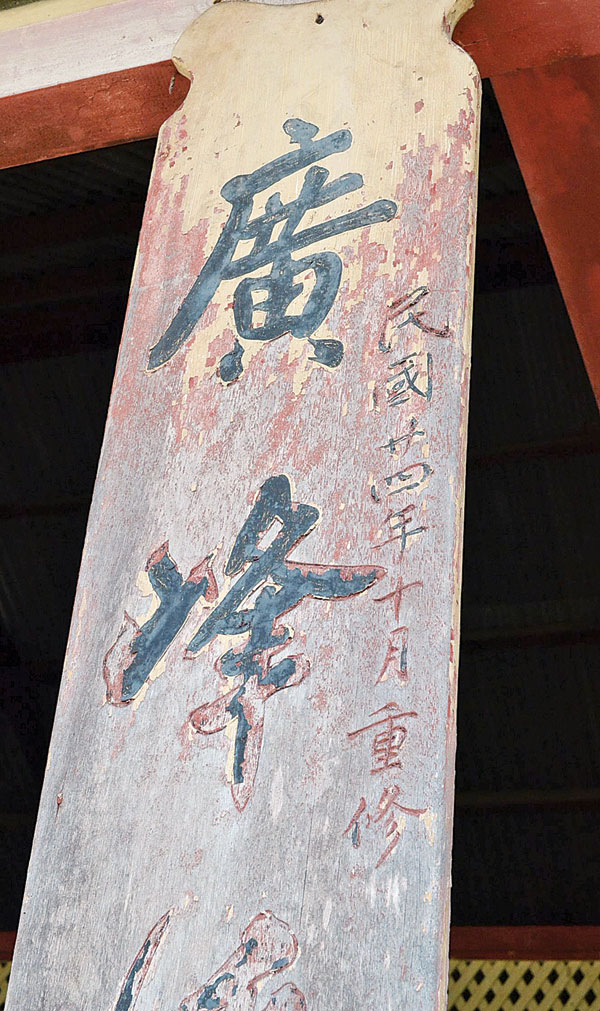 民國廿四年十月重修
廣峰